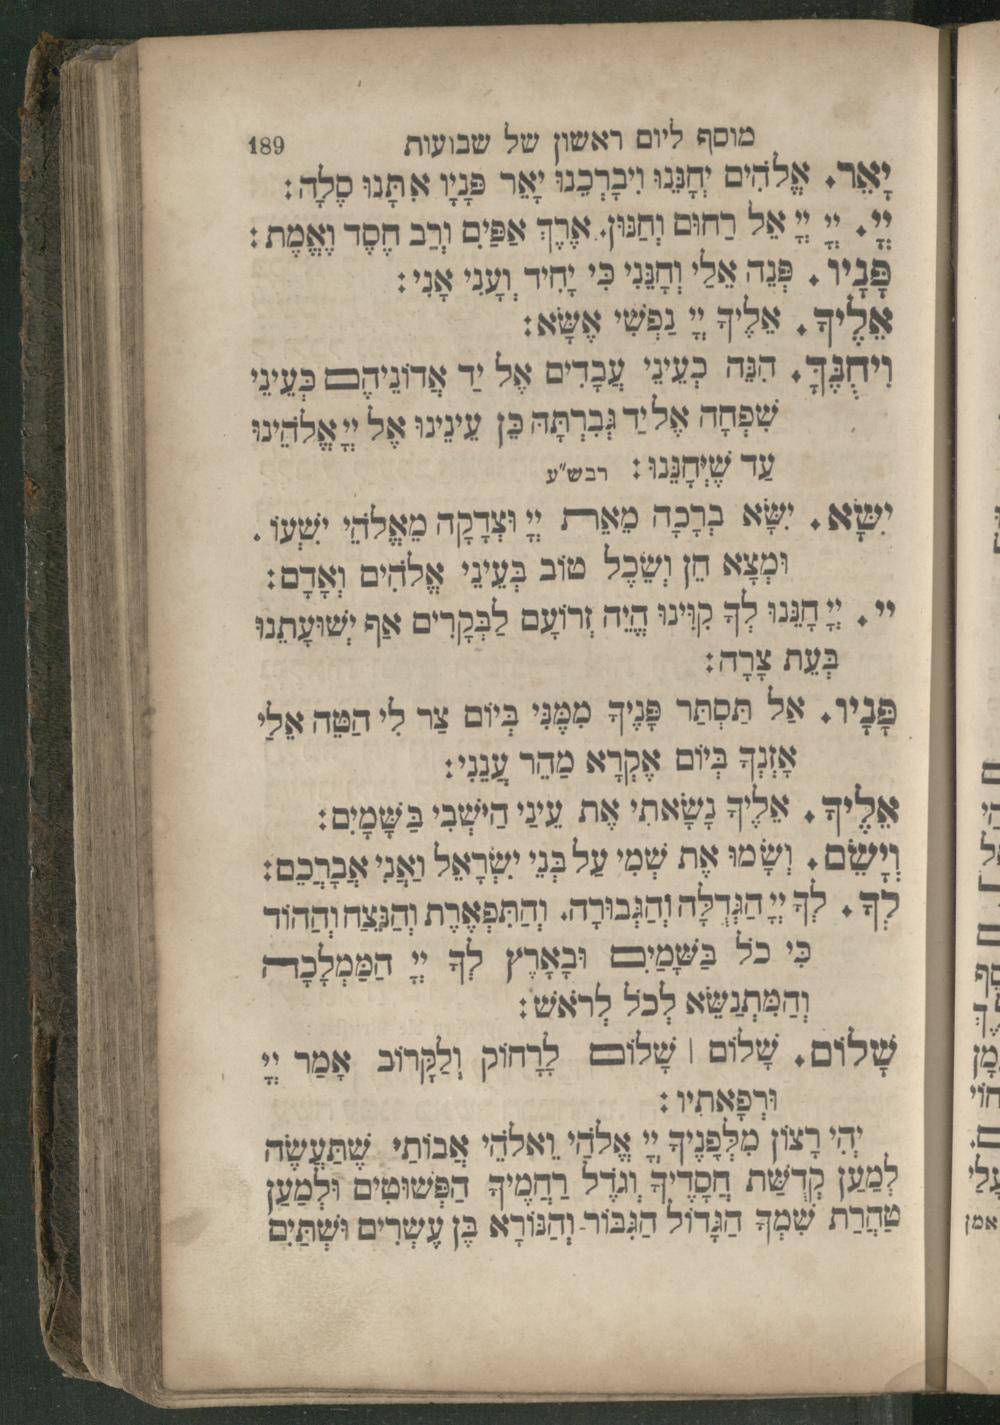 מוסף ליום ראשון של שבועות 189
יָאֵר. אֱלֹהִים יְחָנֵּנוּ וִיבָרְכֵנוּ יָאֵר פָּנָיו אִתָּנוּ סֶלָה:
יְיָ. יְיָ יְיָ אֵל רַחוּם וְחַנּוּן. אֶרֶךְ אַפַּיִם וְרַב חֶסֶד וֶאֱמֶת:
פָּנָיו. פְּנֵה אֵלַי וְחָנֵּנִי כִּי יָחִיד וְעָנִי אָנִי:
אֵלֶיךָ. אֵלֶיךָ יְיָ נַפְשִׁי אֶשָּׂא:
וִיחֻנֶּךָּ. הִנֵּה כְעֵינֵי עֲבָדִים אֶל יַד אֲדוֹנֵיהֶם כְּעֵינֵי
שִׁפְחָה אֶל יַד גְּבִרְתָּהּ כֵּן עֵינֵינוּ אֶל יְיָ אֱלֹהֵינוּ
עַד שֶׁיְּחָנֵּנוּ: רבש״ע
יִשָּׂא. יִשָּׂא בְרָכָה מֵאֵת יְיָ וּצְדָקָה מֵאֱלֹהֵי יִשְׁעוֹ.
וּמְצָא חֵן וְשֵׂכֶל טוֹב בְּעֵינֵי אֱלֹהִים וְאָדָם:
יי. יְיָ חָנֵּנוּ לְךָ קִוִּינוּ הֱיֵה זְרוֹעָם לַבְּקָרִים אַף יְשׁוּעָתֵנוּ
בְּעֵת צָרָה:
פָּנָיו. אַל תַּסְתֵּר פָּנֶיךָ מִמֶּנִּי בְּיוֹם צַר לִי הַטֵּה אֵלַי
אָזְנְךָ בְּיוֹם אֶקְרָא מַהֵר עֲנֵנִי:
אֵלֶיךָ. אֵלֶיךָ נָשָׂאתִי אֶת עֵינַי הַיּשְׁבִי בַּשָּׁמָיִם:
וְיָשֵׂם. וְשָׂמוּ אֶת שְׁמִי עַל בְּנֵי יִשְׂרָאֵל וַאֲנִי אֲבָרֲכֵם:
לְךָ. לְךָ יְיָ הַגְּדֻלָּה וְהַגְּבוּרָה. וְהַתִּפְאֶרֶת וְהַנֵּצַח וְהַהוֹד
כִּי כֹל בַּשָּׁמַיִם וּבָאָרֶץ לְךָ יְיָ הַמַּמְלָכָה
וְהַמִּתְנַשֵּׂא לְכֹל לְרֹאשׁ:
שָׁלוֹם. שָׁלוֹם | שָׁלוֹם לָרָחוֹק וְלַקָּרוֹב אָמַר יְיָ
וּרְפָאתִיו:
יְהִי רָצוֹן מִלְּפָנֶיךָ יְיָ אֱלֹהַי וֵאלֹהֵי אֲבוֹתַי שֶׁתַּעֲשֶׂה
לְמַעַן קְדֻשַּׁת חֲסָדֶיךָ וְגֹדֶל רַחֲמֶיךָ הַפְּשׁוּטִים וּלְמַעַן
טַהֲרַת שִׁמְךָ הַגָּדוֹל הַגִּבּוֹר וְהַנּוֹרָא בֶּן עֶשְׂרִים וּשְׁתַּיִם